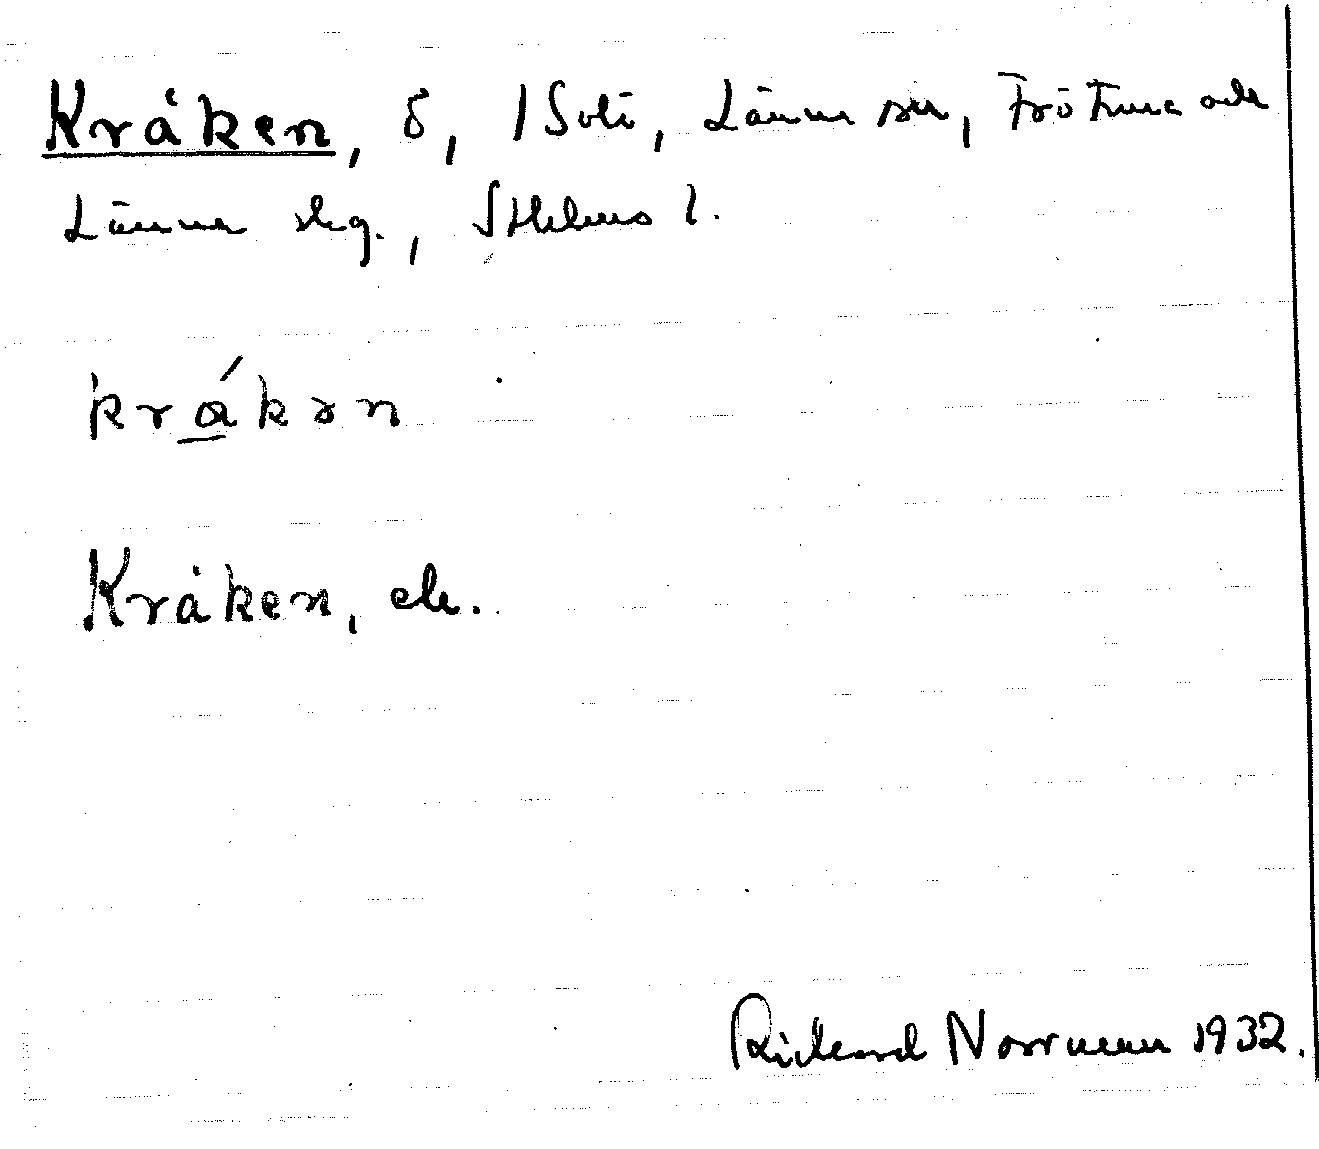 Kråken, ö, 1 Soti, Länna sn, Frötuna och
Länna skg., Sthlms l.
kråkən
Kråken, ek.
Rickard Norrman 1932.